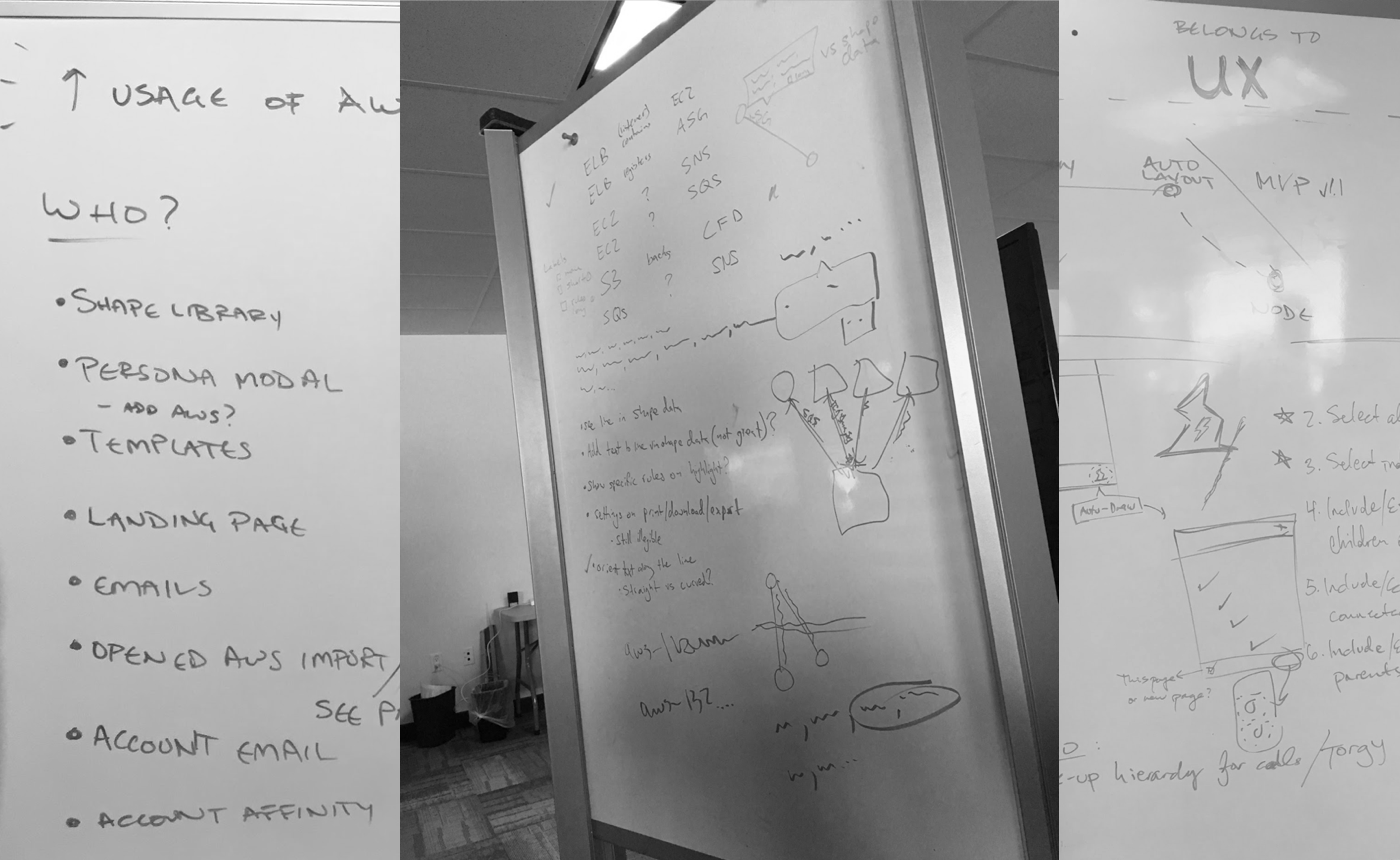 ↑ USAGE OF AW
WHO?
• SHAPE LIBRARY
• PERSONA MODAL
- ADD AWS?
• TEMPLATES
• LANDING PAGE
• EMAILS
• OPENED AWS IMPORT/
SEE
• ACCOUNT EMAIL
• ACCOUNT AFFINITY
vs shape
data
ASG
✓ ELB EC2
ELB registers ASG
EC2 ? SNS
EC2 ? SQS
S3 backs CFD
SQS ? SNS
line in shape data
• Add text to line via shape data (not great)?
• Show specific rules on highlight?
• Settings on print/download/export
- Still illegible
✓ • orient text along the line
- Straight vs curved?
SQS
aws-
aws-132....
BELONGS TO
UX
AUTO
LAYOUT
MVP v1.1
NODE
AUTO-DRAW
☆ 2. Select al
☆ 3. Select
4. Include/E
children
5. Include/E
connecte
6. Include/E
parents
This page
or new page?
-up hierarchy for calls/Torgy